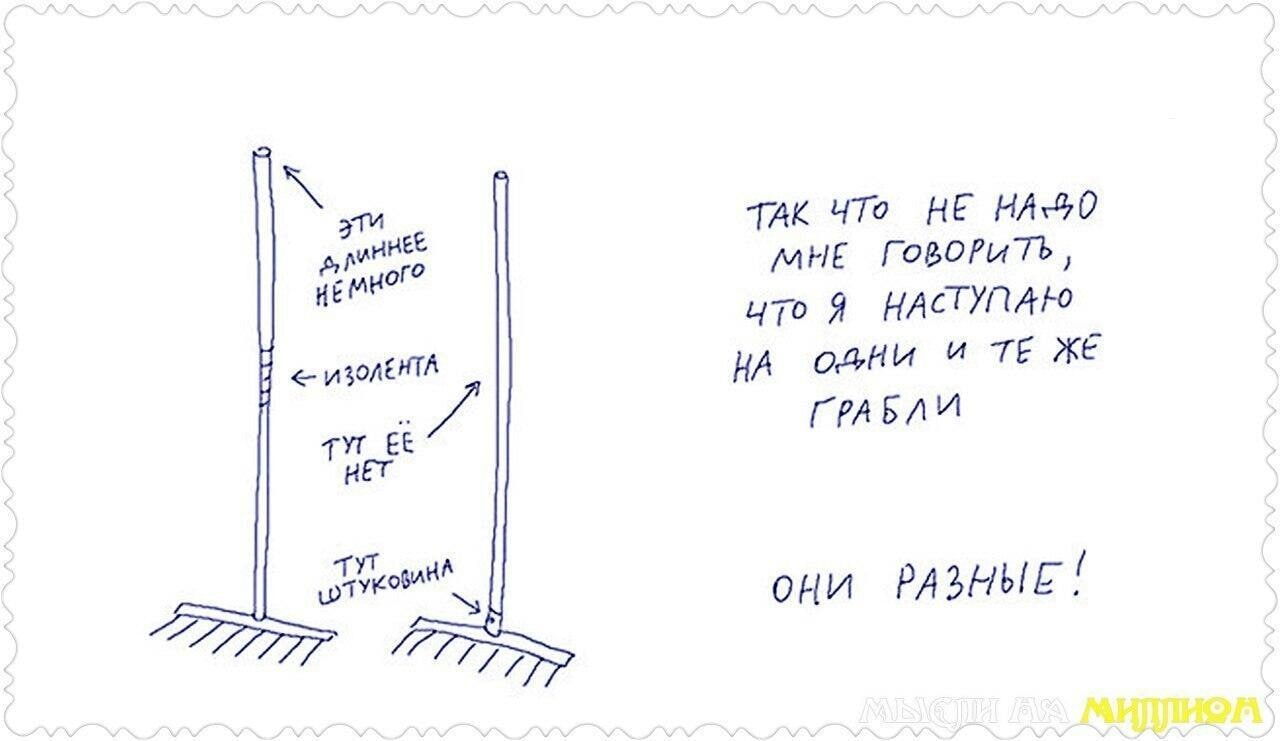 ЭТИ
ДЛИННЕЕ
НЕМНОГО
ИЗОЛЕНТА
ТУТ ЕЁ
НЕТ
ТУТ
ШТУКОВИНА
ТАК ЧТО НЕ НАДО
МНЕ ГОВОРИТЬ,
ЧТО Я НАСТУПАЮ
НА ОДНИ И ТЕ ЖЕ
ГРАБЛИ
ОНИ РАЗНЫЕ!
МЫСЛИ НА МИЛЛИОН